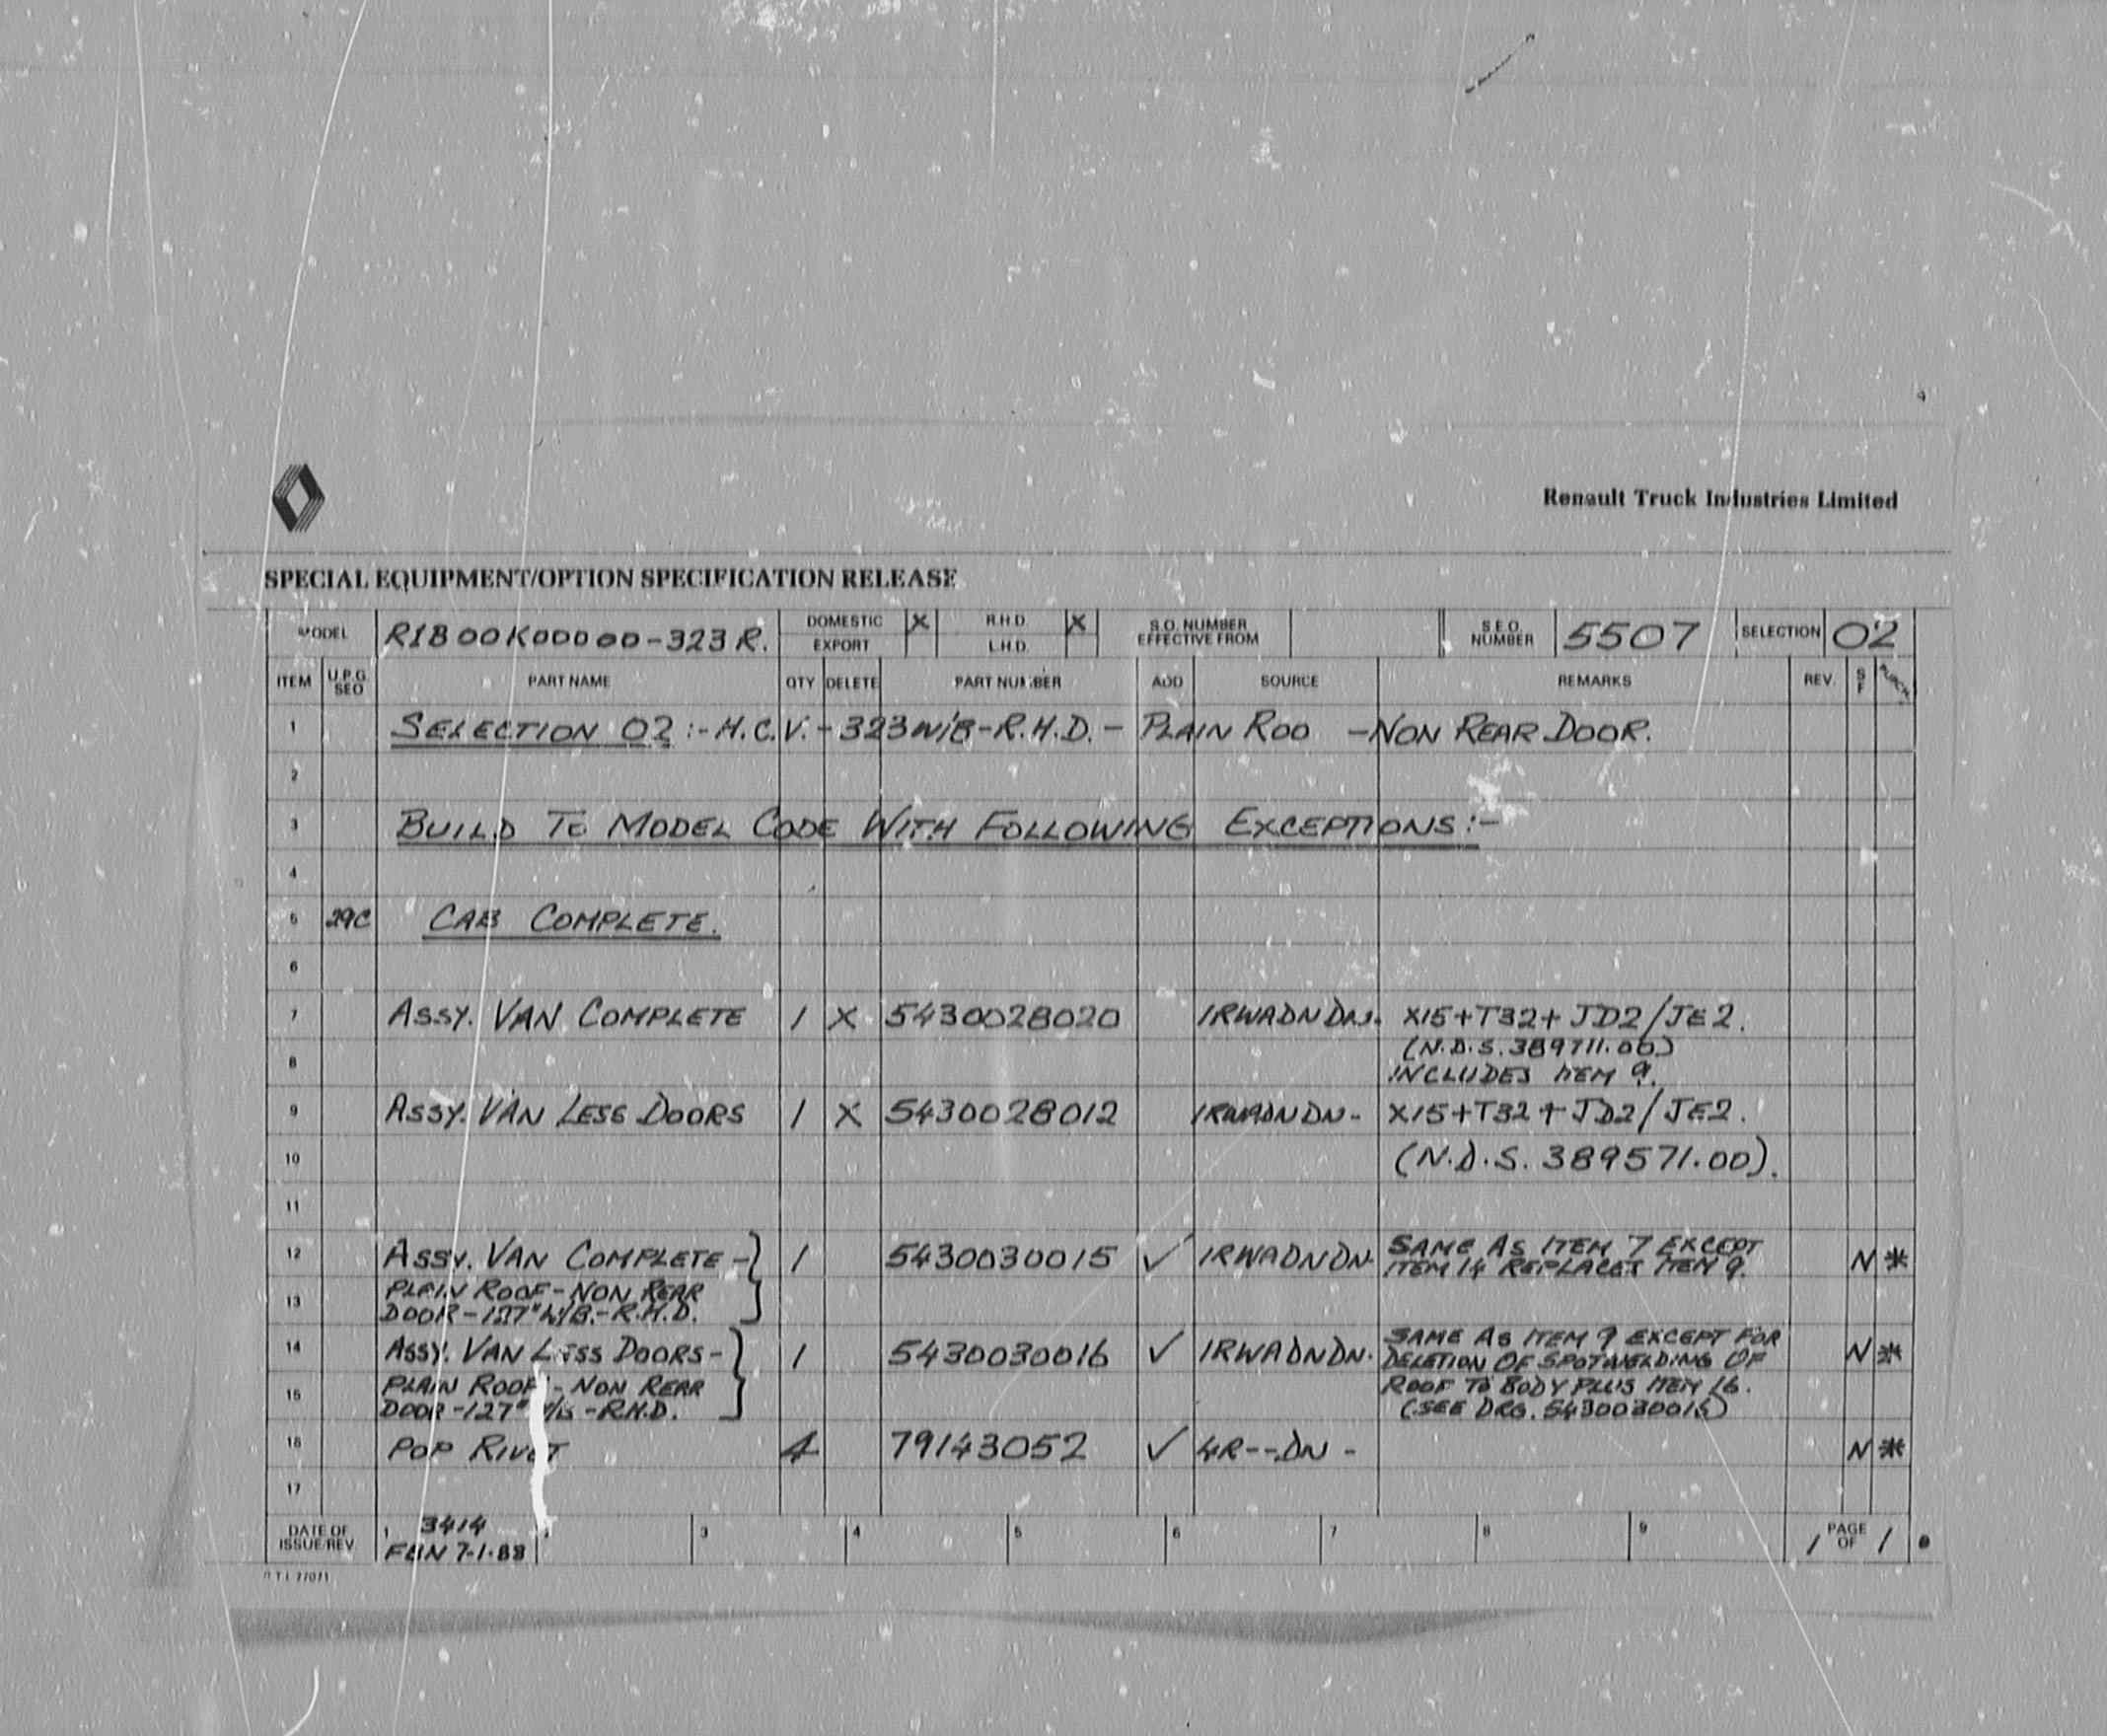 Renault Truck Industries Limited
SPECIAL EQUIPMENT/OPTION SPECIFICATION RELEASE
MODEL R1B00K00000-323R. DOMESTIC X R.H.D X S.O. NUMBER EFFECTIVE FROM S.E.O. NUMBER 5507 SELECTION 02
EXPORT L.H.D.
ITEM U.P.G. SEO PART NAME QTY DELETE PART NUMBER ADD SOURCE REMARKS REV. S F PURCH.
1 SELECTION 02:-H.C.V.-323W/B-R.H.D.- PLAIN ROO -NON REAR DOOR.
2
3 BUILD TO MODEL CODE WITH FOLLOWING EXCEPTIONS:-
4
5 29C CAB COMPLETE.
6
7 ASSY. VAN COMPLETE 1 X 5430028020 1RWADNDN. X15+T32+JD2/JE2.
(N.D.S. 389711.00)
8 INCLUDES ITEM 9.
9 ASSY. VAN LESS DOORS 1 X 5430028012 1RWADNDN- X15+T32+JD2/JE2.
10 (N.D.S. 389571.00).
11
12 ASSY. VAN COMPLETE- 1 5430030015 ✓ 1RWADNDN. SAME AS ITEM 7 EXCEPT N *
ITEM 14 REPLACES ITEM 9.
13 PLAIN ROOF-NON REAR
DOOR-127" W/B.-R.H.D.
14 ASSY. VAN LESS DOORS- 1 5430030016 ✓ 1RWADNDN. SAME AS ITEM 9 EXCEPT FOR N *
DELETION OF SPOTWELDING OF
15 PLAIN ROOF-NON REAR ROOF TO BODY PLUS ITEM 16.
DOOR-127" W/B-R.H.D. (SEE DRG. 5430030016)
16 POP RIVET 4 79143052 ✓ 4R--DN- N *
17
DATE OF ISSUE/REV 1 3414 2 3 4 5 6 7 8 9 1 PAGE OF 1
7-1-88
R T I 77071